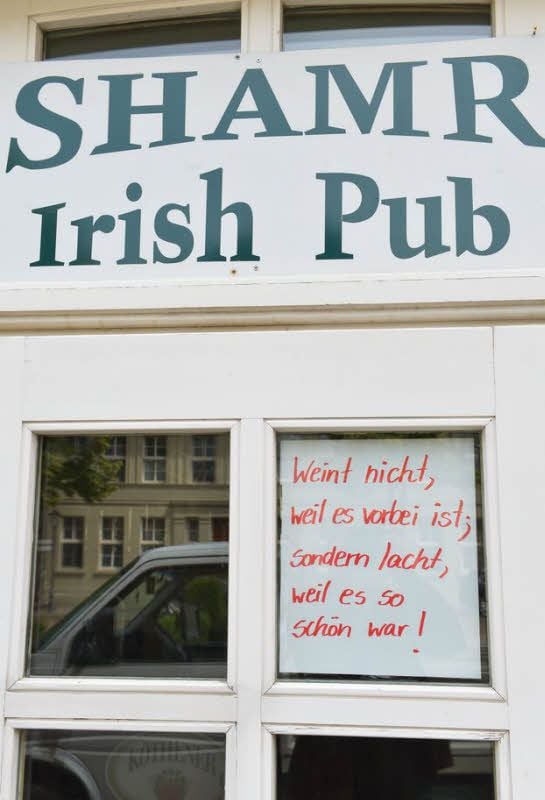 SHAMR
Irish Pub
Weint nicht,
weil es vorbei ist;
sondern lacht,
weil es so
schön war!
KÖTHENER